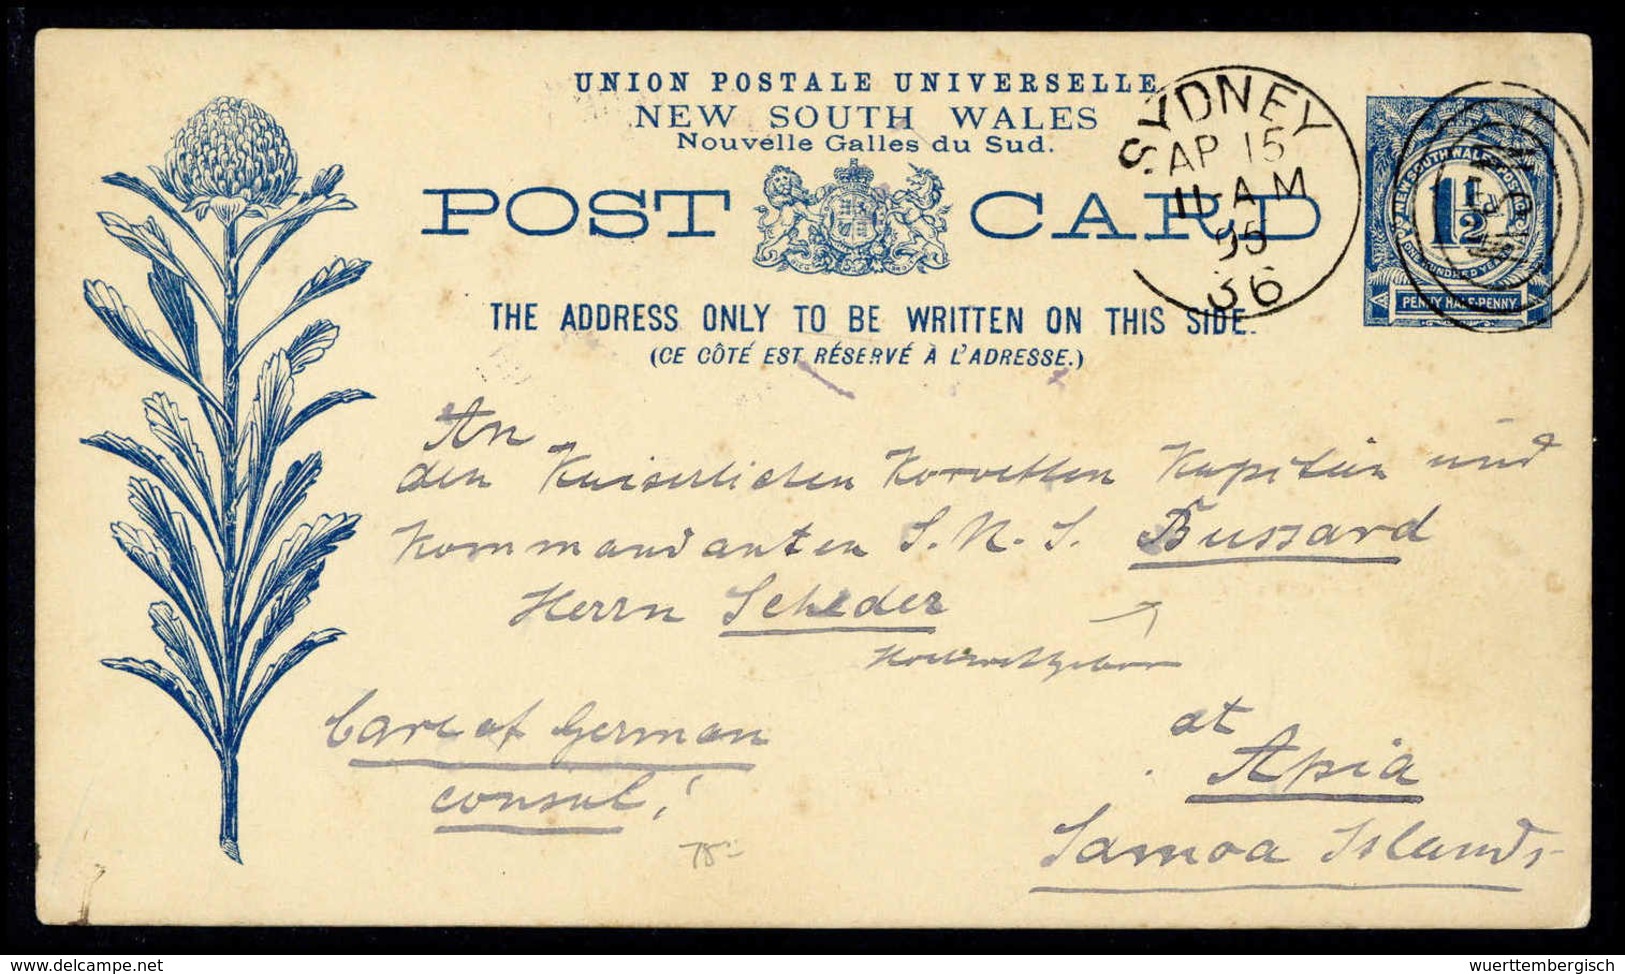 UNION POSTALE UNIVERSELLE
NEW SOUTH WALES
Nouvelle Galles du Sud.
POST CARD
THE ADDRESS ONLY TO BE WRITTEN ON THIS SIDE.
(CE CÔTÉ EST RÉSERVÉ À L'ADRESSE.)
SYDNEY
AP 15
11-AM
95
36
1½
PENNY HALF-PENNY
An
den Kaiserlichen Korvetten Kapitän und
Kommandanten S. M. S. Bussard
Herrn Scheder
Hochwohlgeboren
Care of German
consul!
at
Apia
Samoa Islands
75-
wuerttembergisch